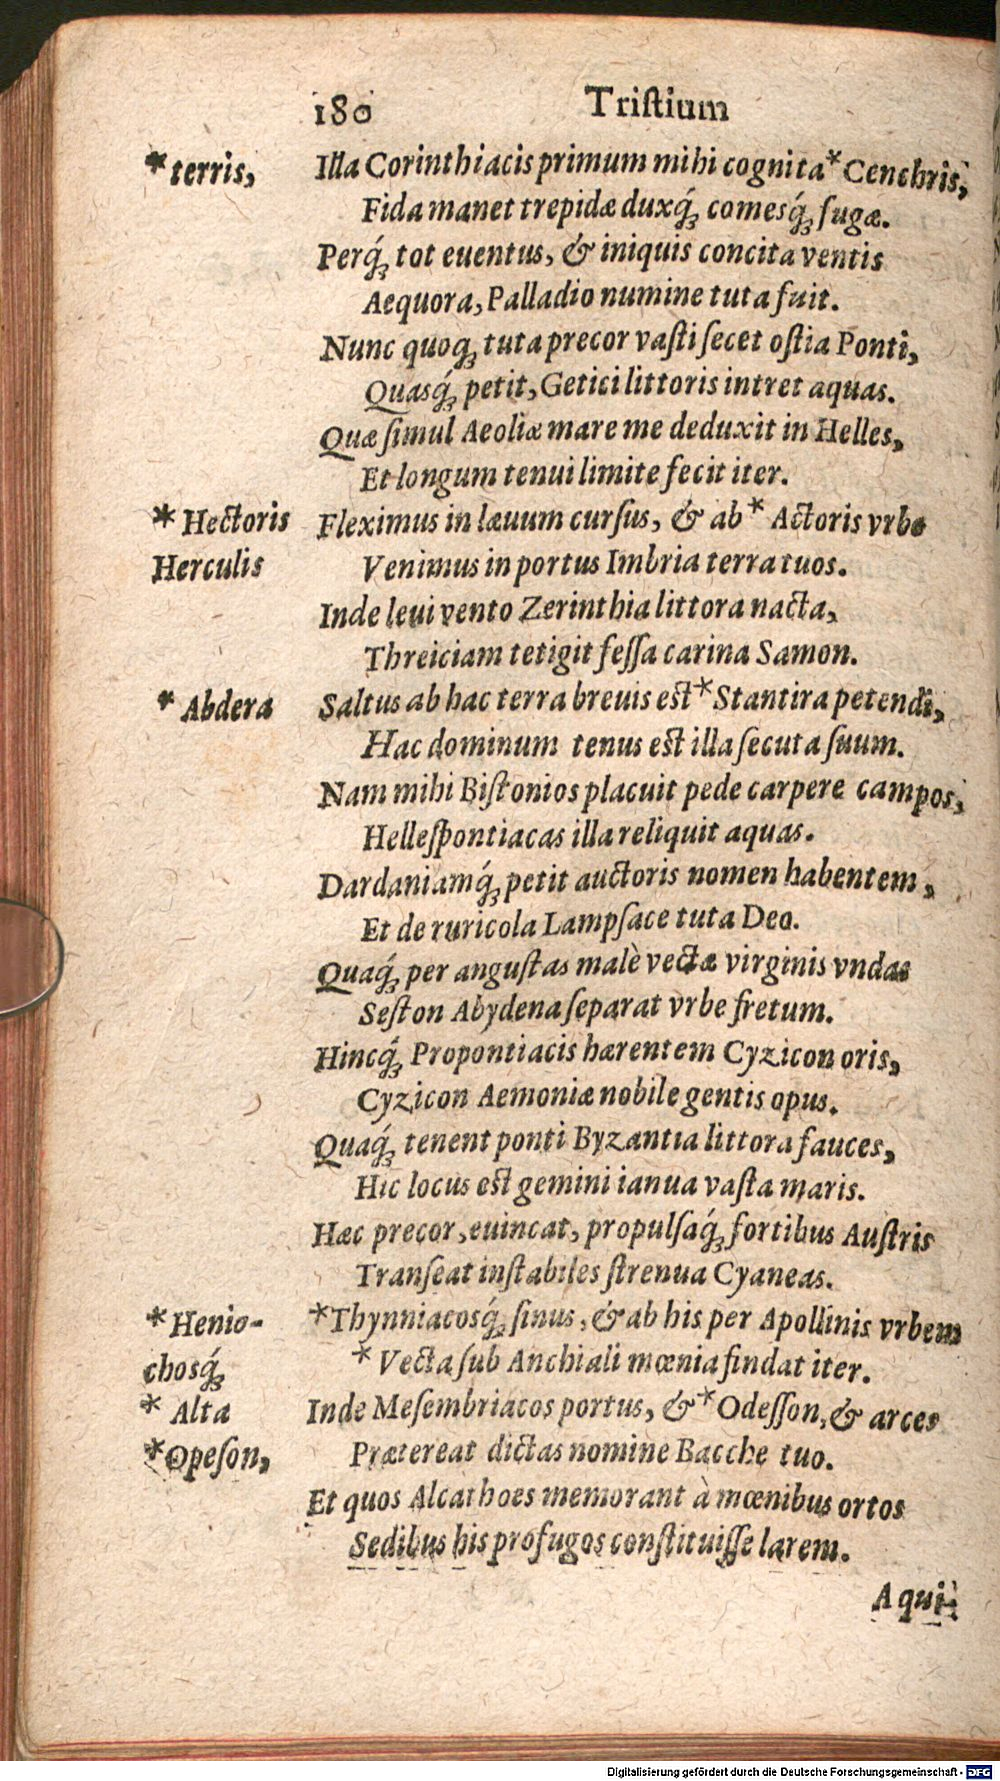 180 Tristium
* terris, Illa Corinthiacis primum mihi cognita * Cenchris,
Fida manet trepidæ duxq́; comesq́; fugæ.
Perq́; tot euentus, & iniquis concita ventis
Aequora, Palladio numine tuta fuit.
Nunc quoq; tuta precor vasti secet ostia Ponti,
Quasq́; petit, Getici littoris intret aquas.
Quæ simul Aeoliæ mare me deduxit in Helles,
Et longum tenui limite fecit iter.
* Hectoris Fleximus in læuum cursus, & ab * Actoris vrbe
Herculis Venimus in portus Imbria terra tuos.
Inde leui vento Zerinthia littora nacta,
Threiciam tetigit fessa carina Samon.
* Abdera Saltus ab hac terra breuis est * Stantira petendi,
Hac dominum tenus est illa secuta suum.
Nam mihi Bistonios placuit pede carpere campos,
Hellespontiacas illa reliquit aquas.
Dardaniamq́; petit auctoris nomen habentem,
Et de ruricola Lampsace tuta Deo.
Quaq́; per angustas malè vectæ virginis vndas
Seston Abydena separat vrbe fretum.
Hincq́; Propontiacis hærentem Cyzicon oris,
Cyzicon Aemoniæ nobile gentis opus.
Quaq́; tenent ponti Byzantia littora fauces,
Hic locus est gemini ianua vasta maris.
Hæc precor, euincat, propulsaq́; fortibus Austris
Transeat instabiles strenua Cyaneas.
* Henio- *Thynniacosq́; sinus, & ab his per Apollinis vrbem
chosq́; * Vecta sub Anchiali mœnia findat iter.
* Alta Inde Mesembriacos portus, & * Odesson, & arces
*Opeson, Prætereat dictas nomine Bacche tuo.
Et quos Alcathoes memorant à mœnibus ortos
Sedibus his profugos constituisse larem.
A qui-
Digitalisierung gefördert durch die Deutsche Forschungsgemeinschaft - DFG